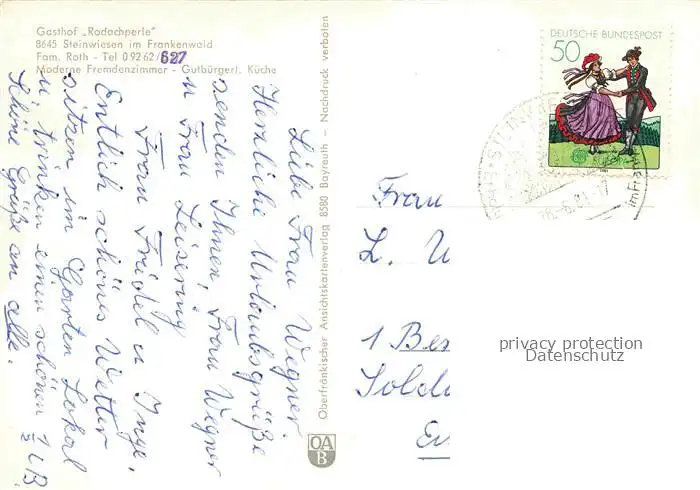 Gasthof „Rodachperle"
8645 Steinwiesen im Frankenwald
Fam. Roth - Tel 0 92 62/627
Moderne Fremdenzimmer - Gutbürgerl. Küche
Liebe Frau Wegner.
Herzliche Urlaubsgrüße
senden Ihnen, Frau Wegner
u Frau Leisering
Frau Friedel u Inge.
Entlich schönes Wetter
sitzen im Garten Lokal
u. trinken einen schönen
Schöne Grüße an alle.
Oberfränkischer Ansichtskartenverlag 8580 Bayreuth - Nachdruck verboten
OA
B
DEUTSCHE BUNDESPOST
50
Frau
L. W
1 Be
Sold
privacy protection
Datenschutz